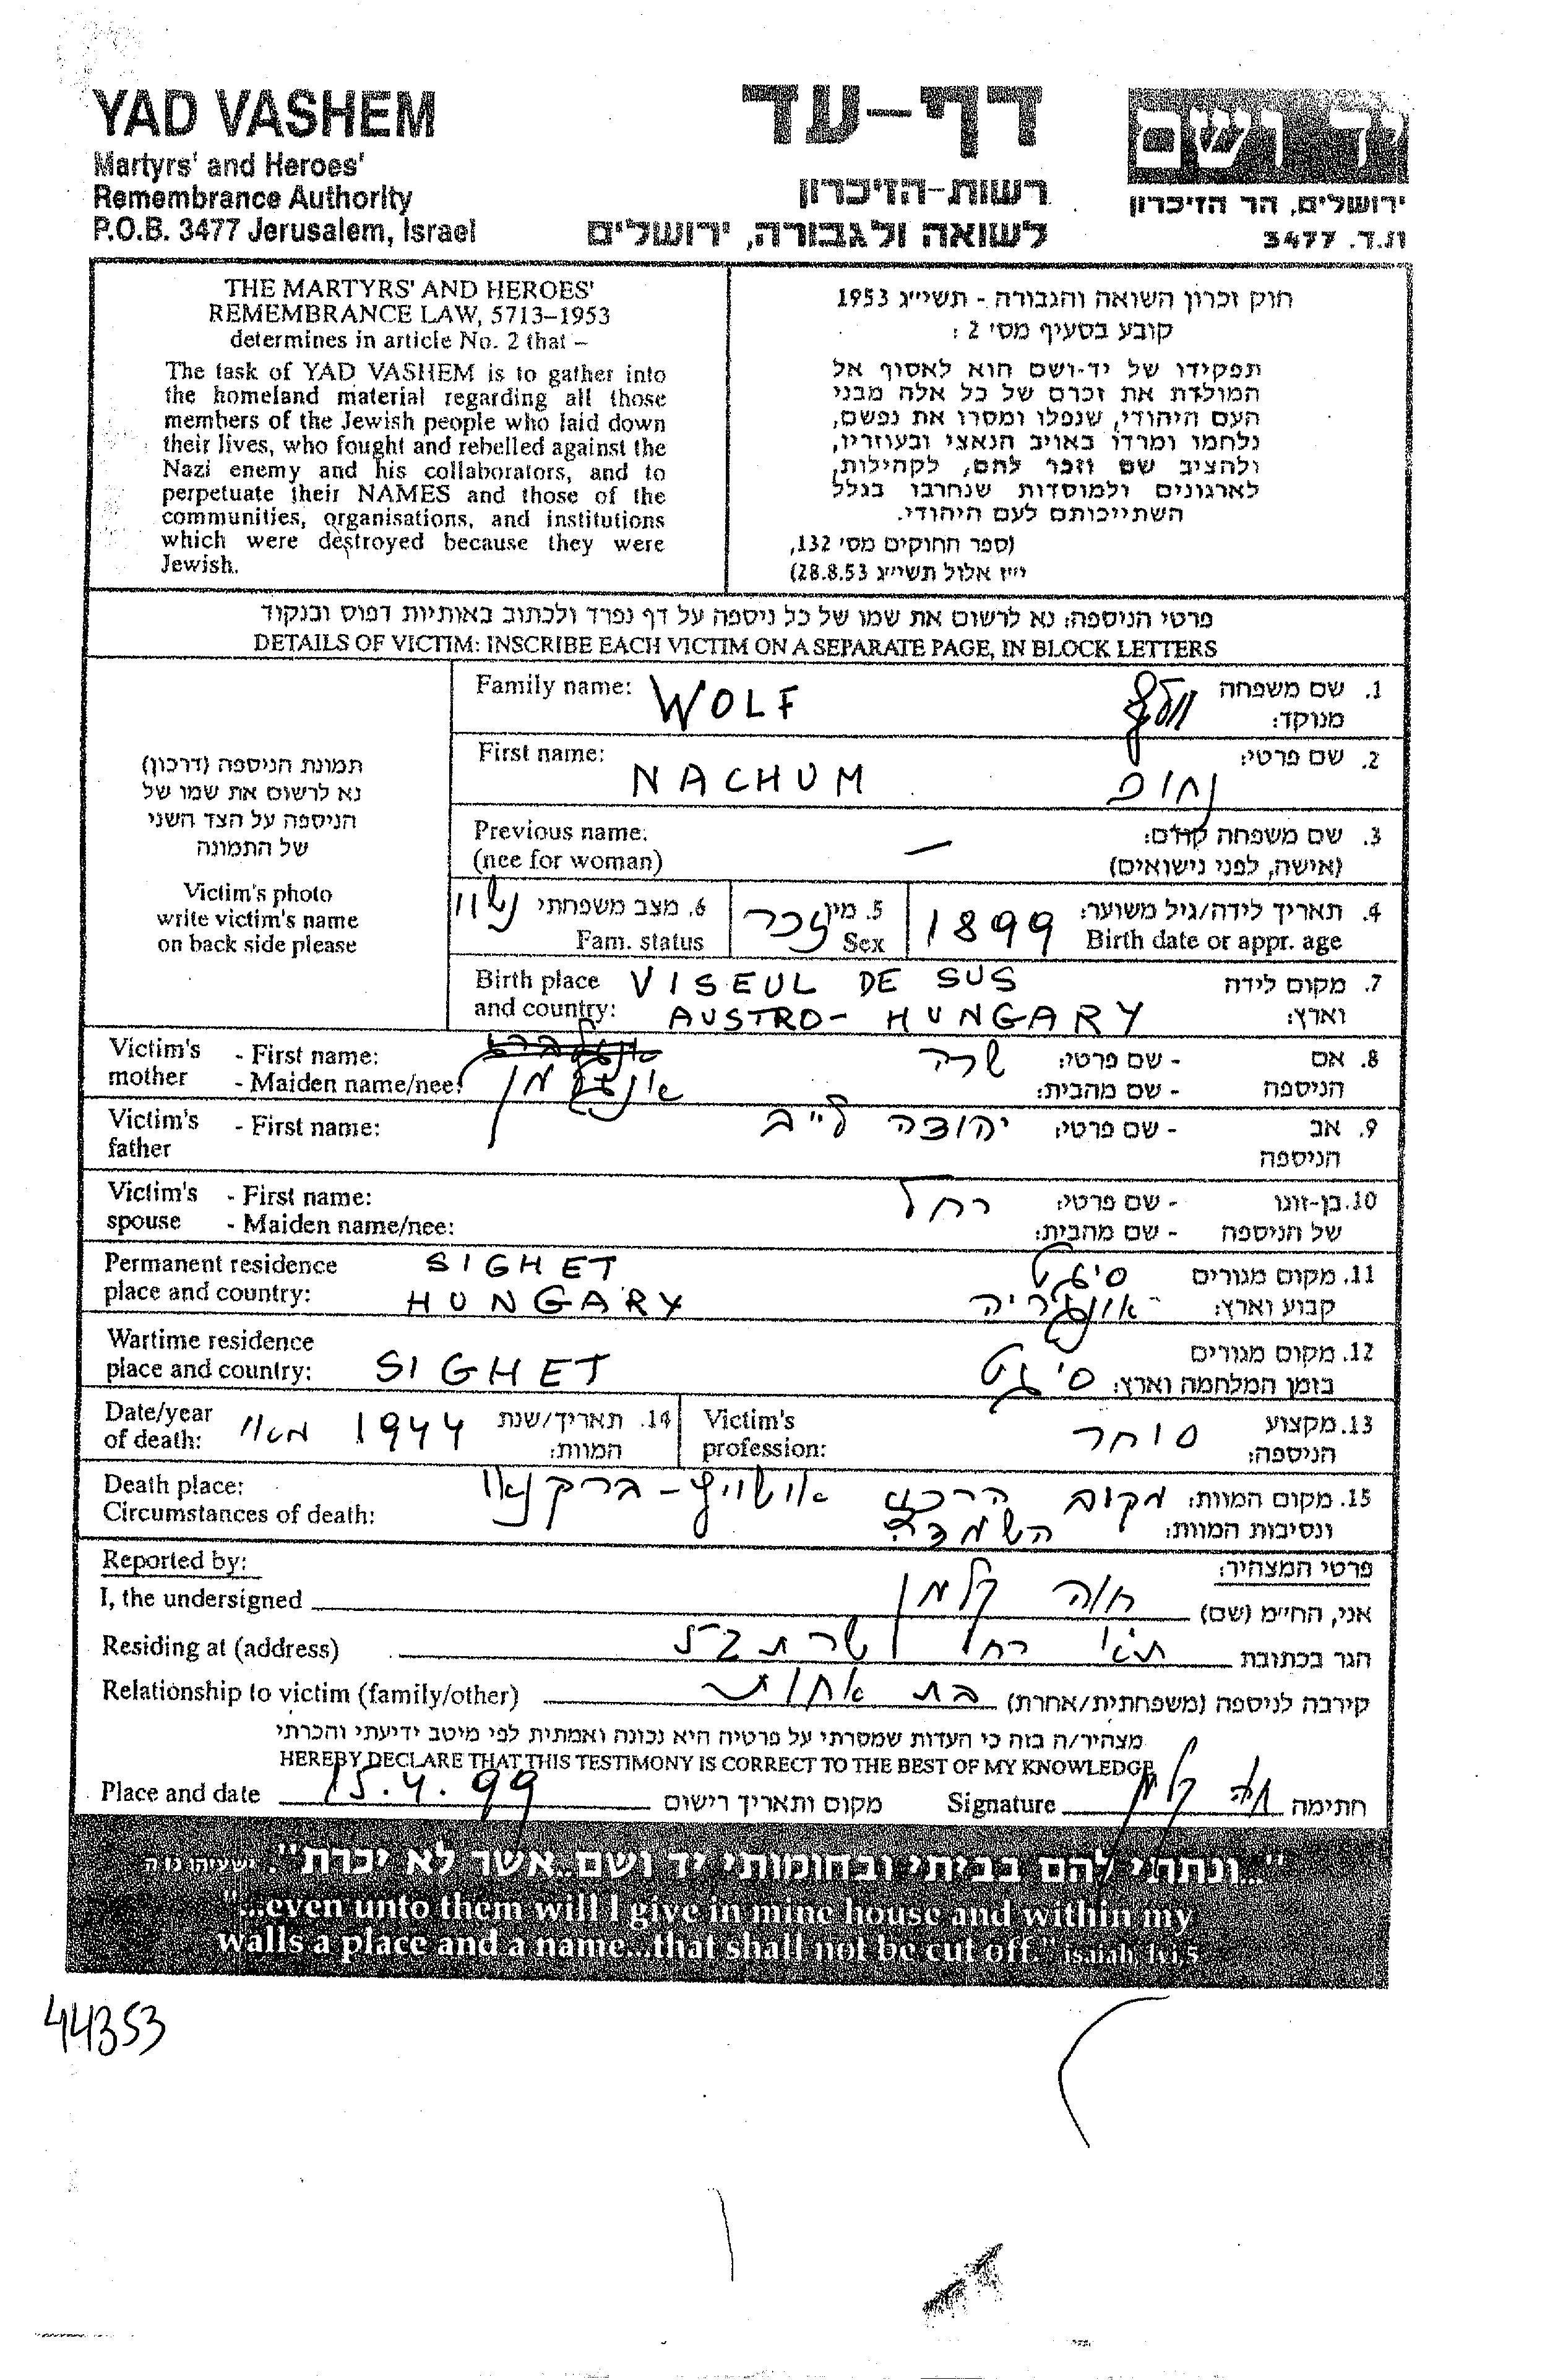 YAD VASHEM
Martyrs' and Heroes'
Remembrance Authority
P.O.B. 3477 Jerusalem, Israel
דף-עד
רשות-הזיכרון
לשואה ולגבורה, ירושלים
יד ושם
ירושלים, הר הזיכרון
ת.ד. 3477
THE MARTYRS' AND HEROES'
REMEMBRANCE LAW, 5713–1953
determines in article No. 2 that –
The task of YAD VASHEM is to gather into
the homeland material regarding all those
members of the Jewish people who laid down
their lives, who fought and rebelled against the
Nazi enemy and his collaborators, and to
perpetuate their NAMES and those of the
communities, organisations, and institutions
which were destroyed because they were
Jewish.
חוק זכרון השואה והגבורה - תשי״ג 1953
קובע בסעיף מס׳ 2 :
תפקידו של יד-ושם הוא לאסוף אל
המולדת את זכרם של כל אלה מבני
העם היהודי, שנפלו ומסרו את נפשם,
נלחמו ומרדו באויב הנאצי ובעוזריו,
ולהציב שם וזכר להם, לקהילות,
לארגונים ולמוסדות שנחרבו בגלל
השתייכותם לעם היהודי.
(ספר החוקים מס׳ 132,
י״ז אלול תשי״ג 28.8.53)
פרטי הניספה: נא לרשום את שמו של כל ניספה על דף נפרד ולכתוב באותיות דפוס ובנקוד
DETAILS OF VICTIM: INSCRIBE EACH VICTIM ON A SEPARATE PAGE, IN BLOCK LETTERS
תמונת הניספה (דרכון)
נא לרשום את שמו של
הניספה על הצד השני
של התמונה
Victim's photo
write victim's name
on back side please
Family name: WOLF וולף 1. שם משפחה
מנוקד:
First name: NACHUM נחום 2. שם פרטי:
Previous name: — 3. שם משפחה קודם:
(nee for woman) (אישה, לפני נישואים)
6. מצב משפחתי נשוי 5. מין זכר 1899 4. תאריך לידה/גיל משוער:
Fam. status Sex Birth date or appr. age
Birth place VISEUL DE SUS 7. מקום לידה
and country: AUSTRO-HUNGARY וארץ:
Victim's - First name: שרה - שם פרטי: 8. אם
mother - Maiden name/nee: - שם מהבית: הניספה
Victim's - First name: יהודה לייב - שם פרטי: 9. אב
father הניספה
Victim's - First name: רחל - שם פרטי: 10. בן-זוגו
spouse - Maiden name/nee: - שם מהבית: של הניספה
Permanent residence SIGHET סיגט 11. מקום מגורים
place and country: HUNGARY אונגריה קבוע וארץ:
Wartime residence 12. מקום מגורים
place and country: SIGHET סיגט בזמן המלחמה וארץ:
Date/year מאי 1944 14. תאריך/שנת Victim's סוחר 13. מקצוע
of death: המוות: profession: הניספה:
Death place: אושויץ-ברקנאו 15. מקום המוות:
Circumstances of death: השמדה ונסיבות המוות:
Reported by: פרטי המצהיר:
I, the undersigned חוה קלמן אני, החי״מ (שם)
Residing at (address) רחל הגר בכתובת
Relationship to victim (family/other) בת אחות קירבה לניספה (משפחתית/אחרת)
מצהיר/ה בזה כי העדות שמסרתי על פרטיה היא נכונה ואמתית לפי מיטב ידיעתי והכרתי
HEREBY DECLARE THAT THIS TESTIMONY IS CORRECT TO THE BEST OF MY KNOWLEDGE
Place and date 15.4.99 מקום ותאריך רישום Signature חוה קלמן חתימה
"...ונתתי להם בביתי ובחומותי יד ושם...אשר לא יכרת". ישעיהו נו ה
"...even unto them will I give in mine house and within my
walls a place and a name...that shall not be cut off." isaiah, lvi,5
44353